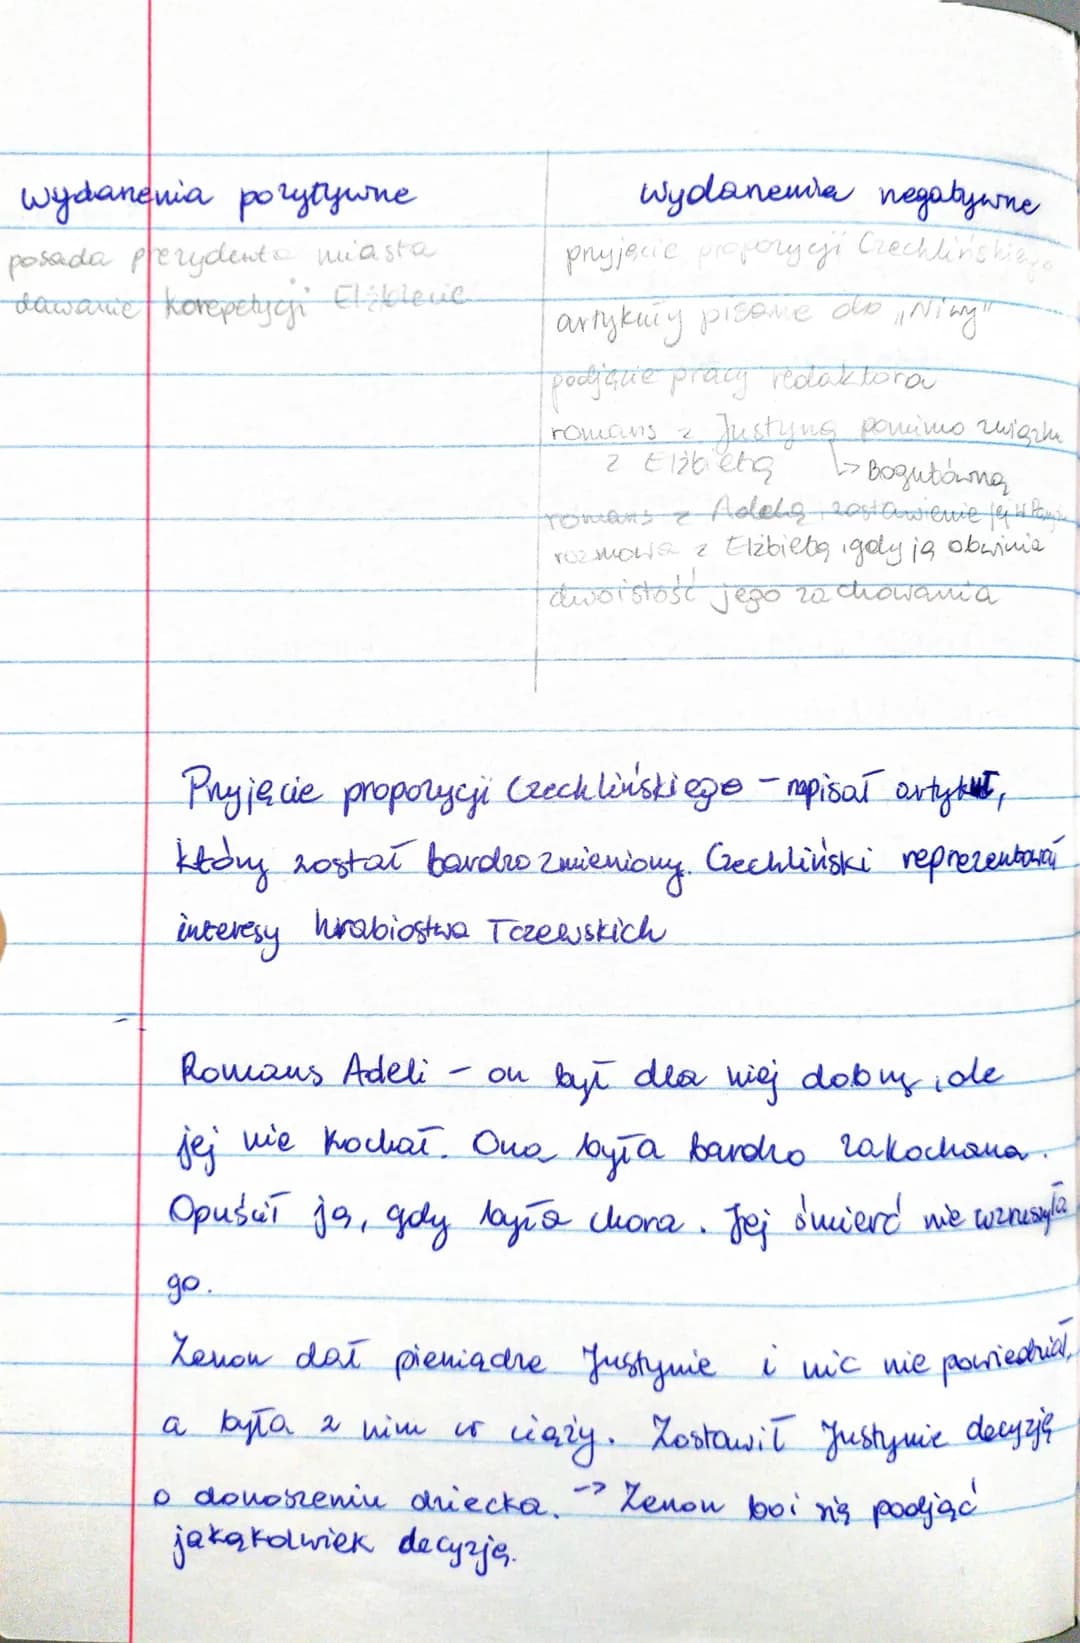 wydarzenia pozytywne
posada prezydenta miasta
dawanie korepetycji Elżbiecie
wydarzenia negatywne
przyjęcie propozycji Czechlińskiego
artykuły pisane do „Niwy"
podjęcie pracy redaktora
romans z Justyną pomimo związku
z Elżbietą ↳ Bogutówną
romans z Adelą, zostawienie jej w
rozmowa z Elżbietą, gdy ją obwinia
dwoistość jego zachowania
Przyjęcie propozycji Czechlińskiego – napisał artykuł,
który został bardzo zmieniony. Czechliński reprezentował
interesy hrabiostwa Tczewskich
Romans Adeli – on był dla niej dobry, ale
jej nie kochał. Ona była bardzo zakochana.
Opuścił ją, gdy była chora. Jej śmierć nie wzruszyła
go.
Zenon dał pieniądze Justynie i nic nie powiedział,
a była z nim w ciąży. Zostawił Justynie decyzję
o donoszeniu dziecka. → Zenon boi się podjąć
jakąkolwiek decyzję.